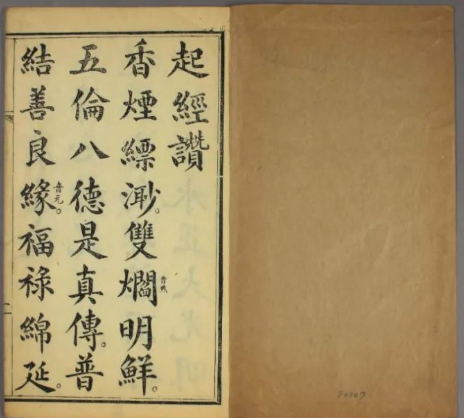 起經讚
香煙縹渺。雙爓明鮮。
五倫八德是真傳。普
結善良緣音元。福祿綿延。